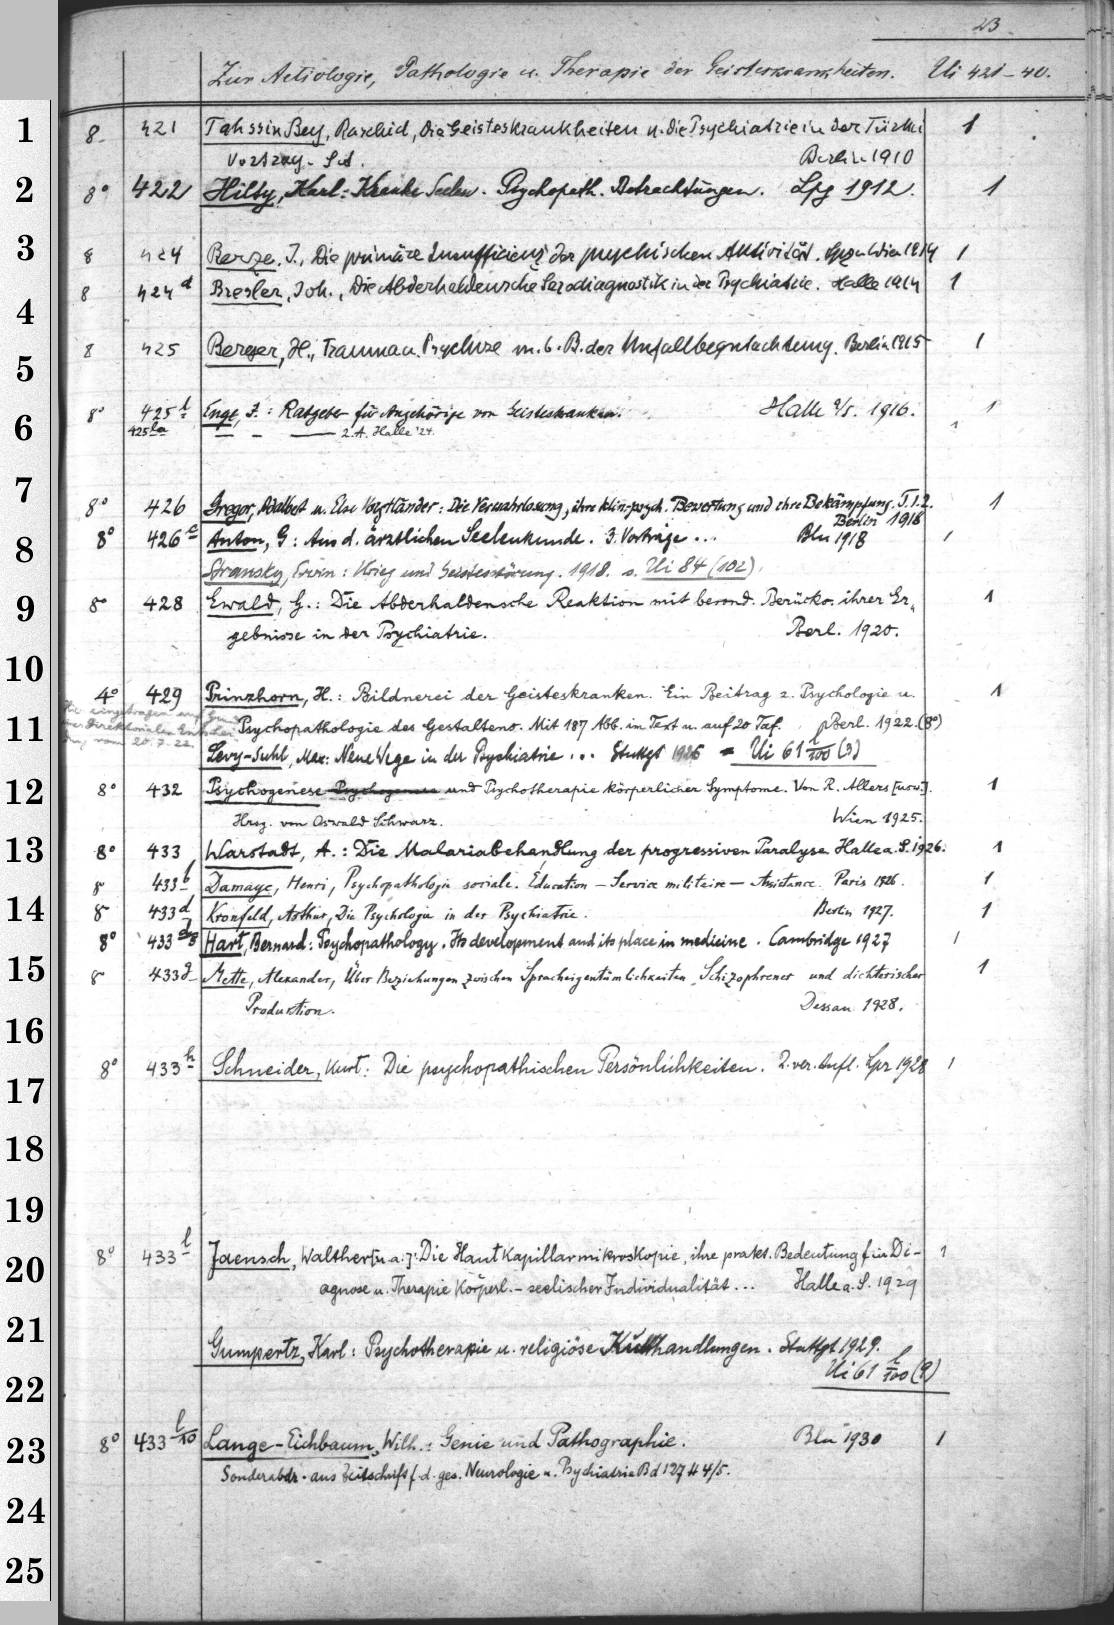 23
Zur Aetiologie, Pathologie u. Therapie der Geisteskrankheiten. Ui 421–40.
1 8 421 Tahssin Bey, Raschid, Die Geisteskrankheiten u. die Psychiatrie in der Türkei 1
Vortrag. S.A. Berlin 1910
2 8° 422 Hilty, Karl: Kranke Seelen. Psychopath. Betrachtungen. Lpg 1912. 1
3 8 424 Berze, J., Die primäre Insufficienz der psychischen Aktivität. Lpz u. Wien 1914 1
8 424 d Bresler, Joh., Die Abderhaldensche Serodiagnostik in der Psychiatrie. Halle 1914 1
4
5 8 425 Berger, H., Trauma u. Psychose m. b. B. der Unfallbegutachtung. Berlin 1915 1
8° 425 l Enge, J.: Ratgeber für Angehörige von Geisteskranken. Halle a/S. 1916. 1
6 425 la — – — 2. A. Halle '24. 1
7 8° 426 Gregor, Adalbert u. Else Voigtländer: Die Verwahrlosung, ihre klin.-psych. Bewertung und ihre Bekämpfung. T. 1.2. 1
Berlin 1918
8 8° 426 c Anton, G: Aus d. ärztlichen Seelenkunde. 3 Vorträge ... Bln 1918 1
Stransky, Erwin: Krieg und Geistesstörung. 1918. s. Ui 84 (102).
9 8° 428 Ewald, G.: Die Abderhaldensche Reaktion mit besond. Berücks. ihrer Er- 1
gebnisse in der Psychiatrie. Berl. 1920.
10
4° 429 Prinzhorn, H.: Bildnerei der Geisteskranken. Ein Beitrag z. Psychologie u. 1
11 Psychopathologie des Gestaltens. Mit 187 Abb. im Text u. auf 20 Taf. Berl. 1922. (8°)
Levy-Suhl, Max: Neue Wege in der Psychiatrie ... Stuttgt 1925 = Ui 61 l/100 (3)
12 8° 432 Psychogenese Psychogenese und Psychotherapie körperlicher Symptome. Von R. Allers [u.a.]. 1
Hrsg. von Oswald Schwarz. Wien 1925.
13 8° 433 Warstadt, A.: Die Malariabehandlung der progressiven Paralyse. Halle a. S. 1926. 1
8° 433 b Damaye, Henri, Psychopathologie sociale. Education – Service militaire – Assistance. Paris 1926. 1
14 8° 433 d Kronfeld, Arthur, Die Psychologie in der Psychiatrie. Berlin 1927. 1
8° 433 Hart, Bernard: Psychopathology. Its development and its place in medicine. Cambridge 1927 1
15 8° 433 g Mette, Alexander, Über Beziehungen zwischen Spracheigentümlichkeiten Schizophrener und dichterischer 1
Produktion. Dessau 1928.
16
8° 433 h Schneider, Kurt: Die psychopathischen Persönlichkeiten. 2. ver. Aufl. Lpz 1928 1
17
18
19
20 8° 433 l Jaensch, Walther [u. a.]: Die Hautkapillarmikroskopie, ihre prakt. Bedeutung für Di- 1
agnose u. Therapie körperl.-seelischer Individualität ... Halle a. S. 1929
21 Gumpertz, Karl: Psychotherapie u. religiöse Kulthandlungen. Stuttgt 1929.
22 Ui 61 l/100 (9)
23 8° 433 l/10 Lange-Eichbaum, Wilh.: Genie und Pathographie. Bln 1930 1
Sonderabdr. aus Zeitschrift f. d. ges. Neurologie u. Psychiatrie Bd 127 H 4/5.
24
25